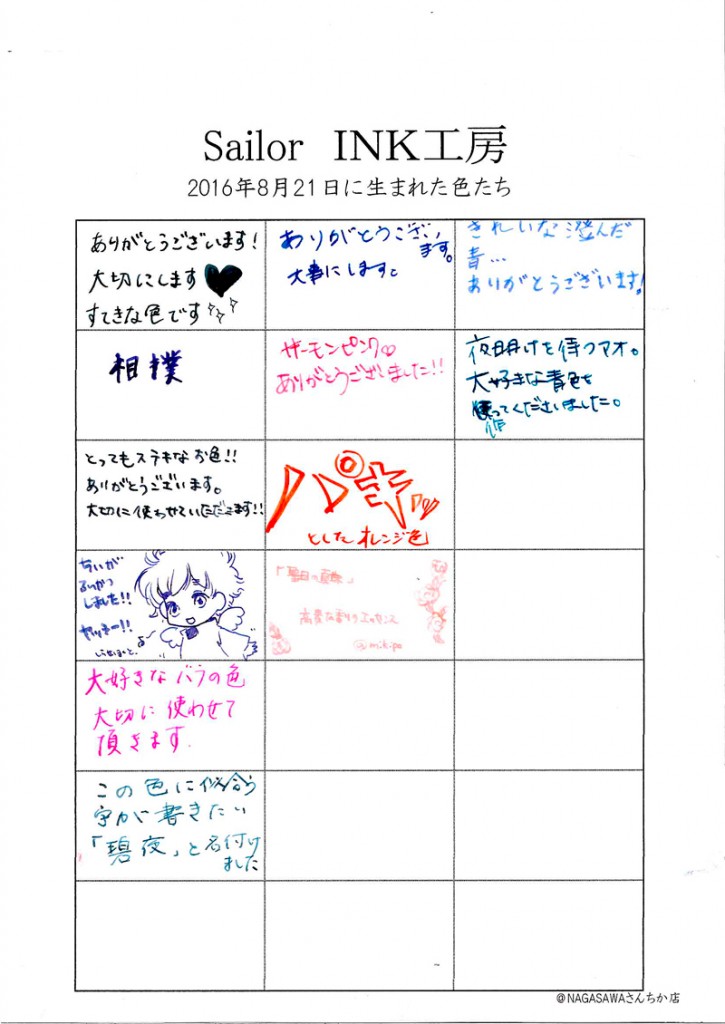 Sailor INK工房
2016年8月21日に生まれた色たち
ありがとうございます!
大切にします♥
すてきな色です
ありがとうござい
ます。
大事にします。
きれいな澄んだ
青...
ありがとうございます!
相撲
サーモンピンク♡
ありがとうございました!!
夜明けを待つアオ。
大好きな青色を
作ってくださいました。
とってもステキなお色!!
ありがとうございます。
大切に使わせていただきます!!
パキッ
としたオレンジ色
ちいが
しました!!
ヤッキー!!
「夏日の
高貴な香りのエッセンス
@mikipo
大好きなバラの色
大切に使わせて
頂きます.
この色に似合う
字が書きたい
「碧夜」と名付け
ました
@NAGASAWAさんちか店